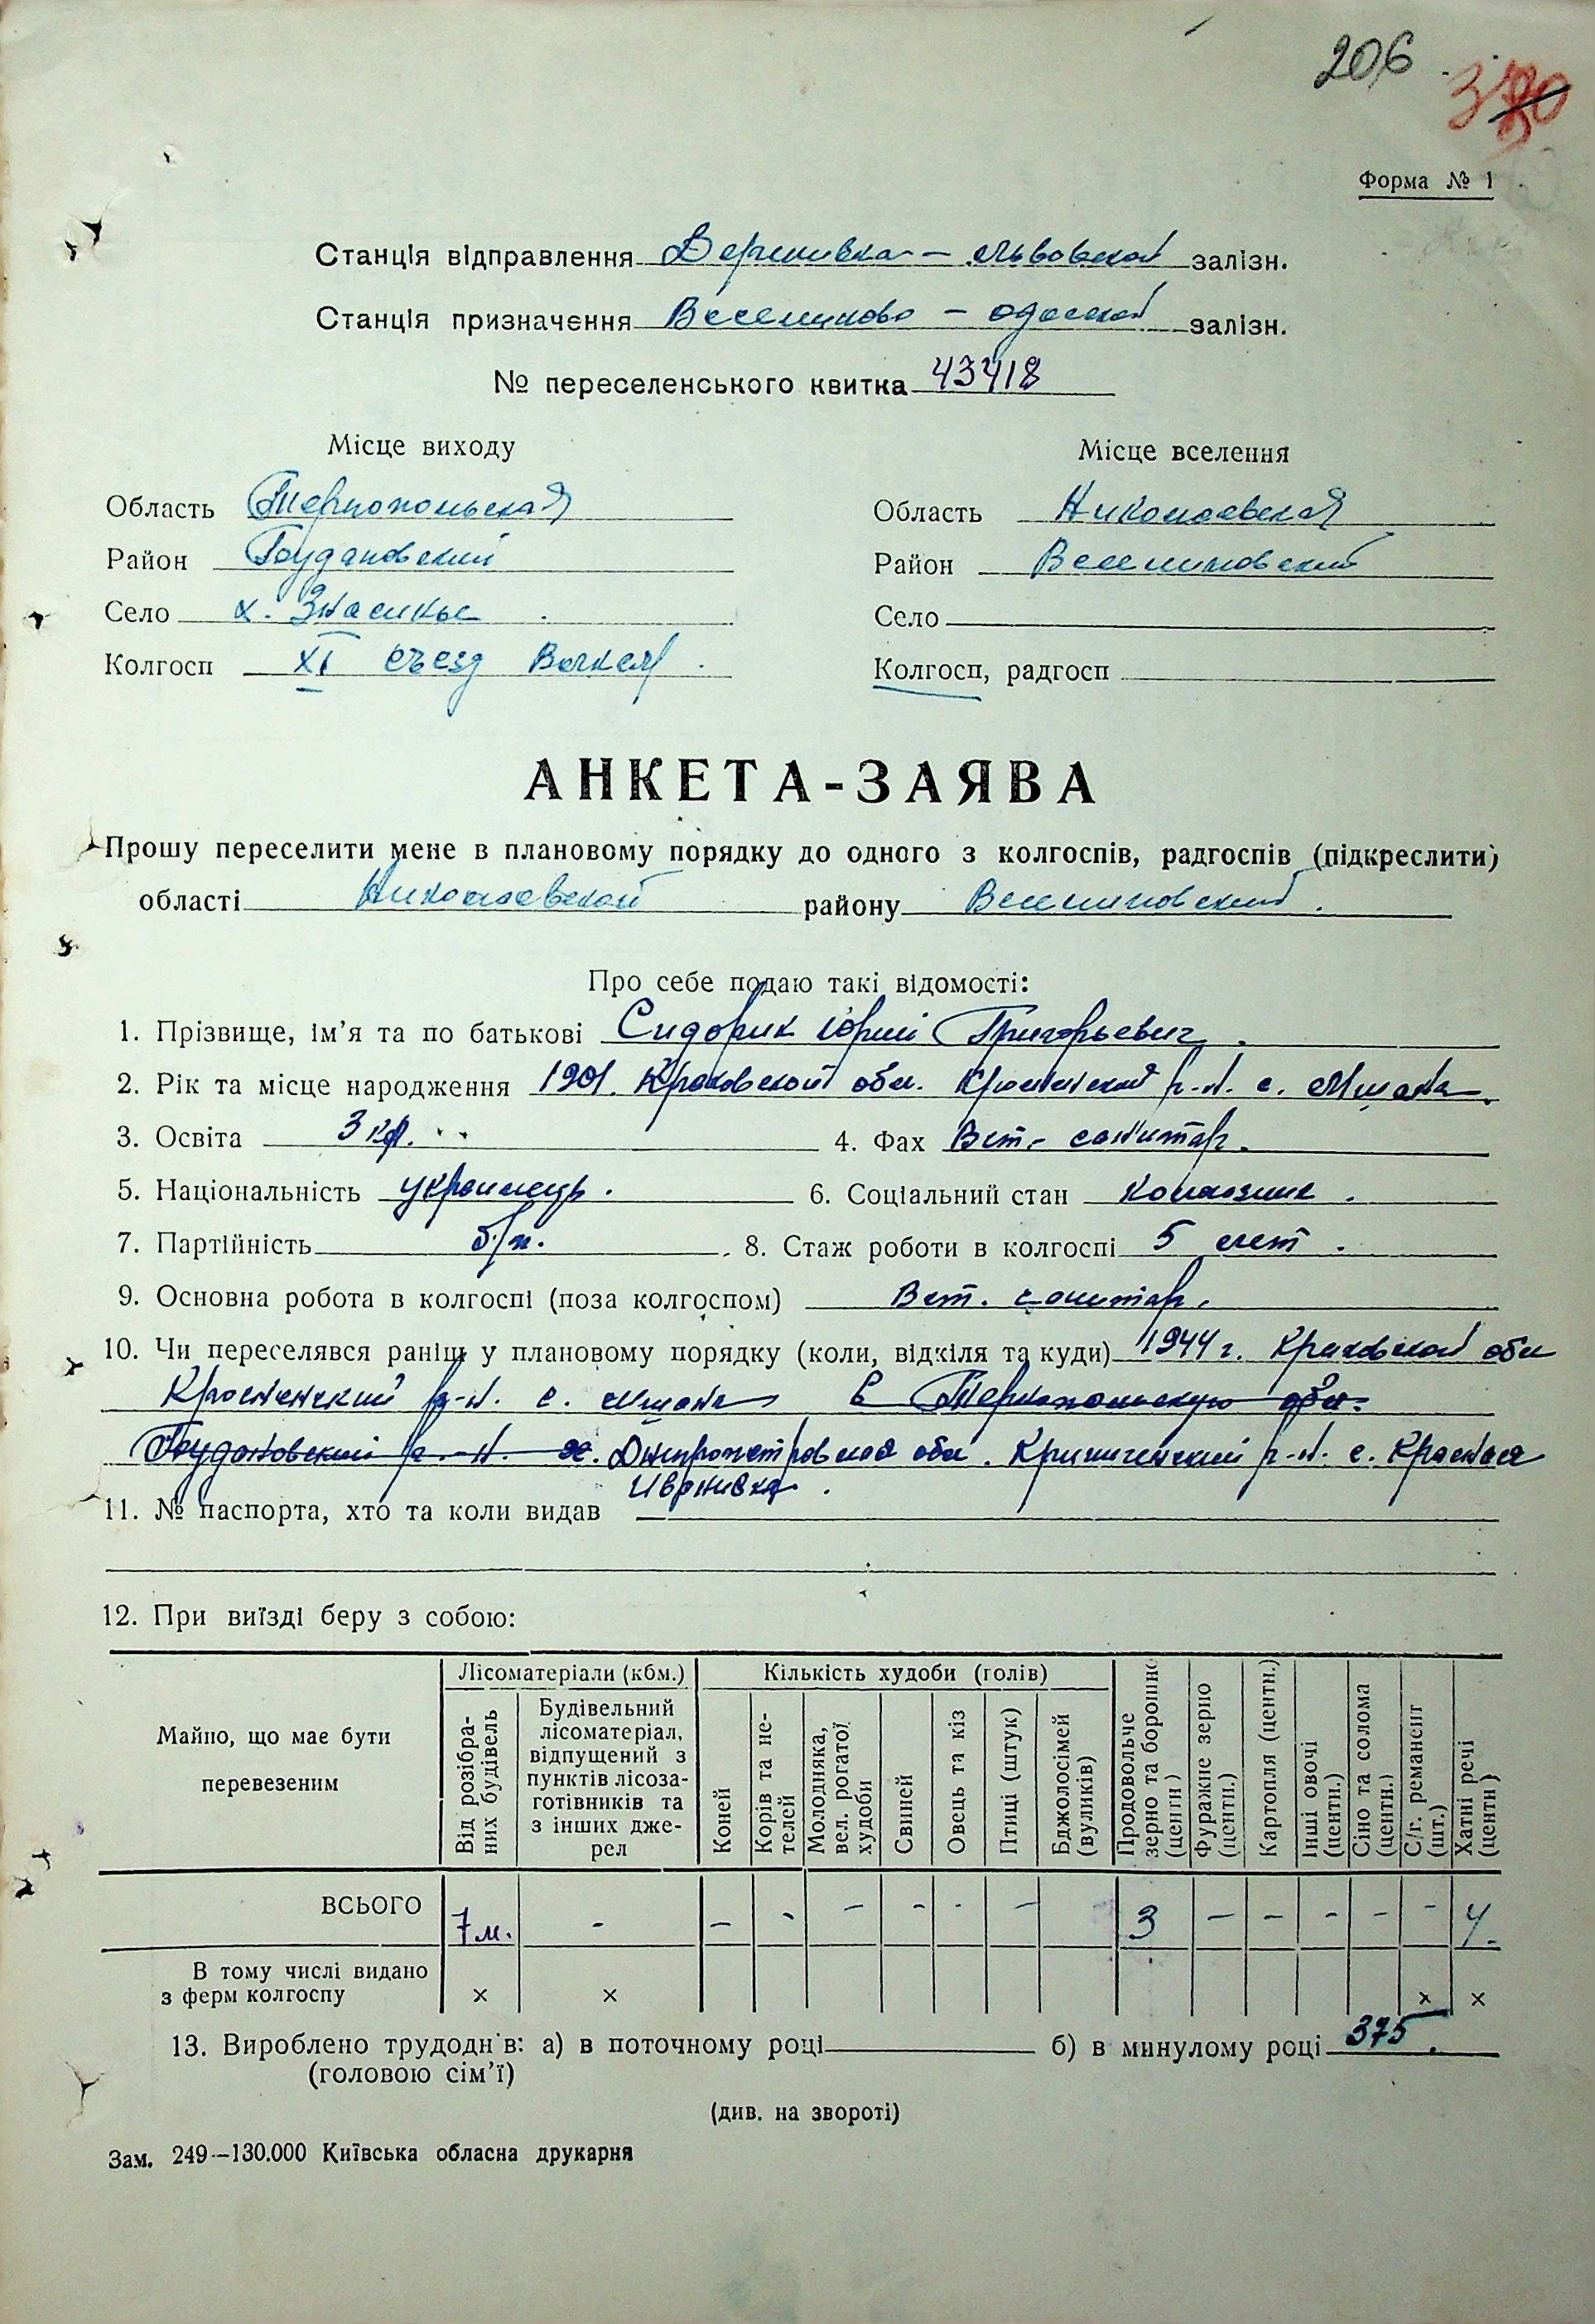 206
Форма № 1
Станція відправлення Деренивка – Львовской залізн.
Станція призначення Веселиново – одесской залізн.
№ переселенського квитка 43418
Місце виходу
Місце вселення
Область Тернопольская
Область Николаевская
Район Будановский
Район Веселиновский
Село х.
Село
Колгосп XI съезд
Колгосп, радгосп
АНКЕТА-ЗАЯВА
Прошу переселити мене в плановому порядку до одного з колгоспів, радгоспів (підкреслити)
області Николаевской району Веселиновский.
Про себе подаю такі відомості:
1. Прізвище, ім’я та по батькові Сидорик Юрий Григорьевич.
2. Рік та місце народження 1901. Краковской обл. Кросненский р-н. с. Мшана.
3. Освіта 3 кл. 4. Фах Вет. санитар.
5. Національність украинець. 6. Соціальний стан колхозник.
7. Партійність б/п. 8. Стаж роботи в колгоспі 5 лет.
9. Основна робота в колгоспі (поза колгоспом) Вет. санитар.
10. Чи переселявся раніш у плановому порядку (коли, відкіля та куди) 1944 г. Краковской обл
Кросненский р-н. с. Мшана в Тернопольскую обл.
Будановский р-н. х. Днипропетровская обл. Криничанский р-н. с. Красная
11. № паспорта, хто та коли видав
12. При виїзді беру з собою:
Майно, що має бути перевезеним
Лісоматеріали (кбм.)
Кількість худоби (голів)
Від розібраних будівель
Будівельний лісоматеріал, відпущений з пунктів лісозаготівників та з інших джерел
Коней
Корів та нетелей
Молодняка, вел. рогатої худоби
Свиней
Овець та кіз
Птиці (штук)
Бджолосімей (вуликів)
Продовольче зерно та борошно (центн)
Фуражне зерно (центн.)
Картопля (центн.)
Інші овочі (центн.)
Сіно та солома (центн.)
С/г. реманент (шт.)
Хатні речі (центн)
ВСЬОГО 7 м. - - - - - - - 3 - - - - - 4.
В тому числі видано
з ферм колгоспу × × × ×
13. Вироблено трудоднів: а) в поточному році б) в минулому році 375.
(головою сім’ї)
(див. на звороті)
Зам. 249—130.000 Київська обласна друкарня